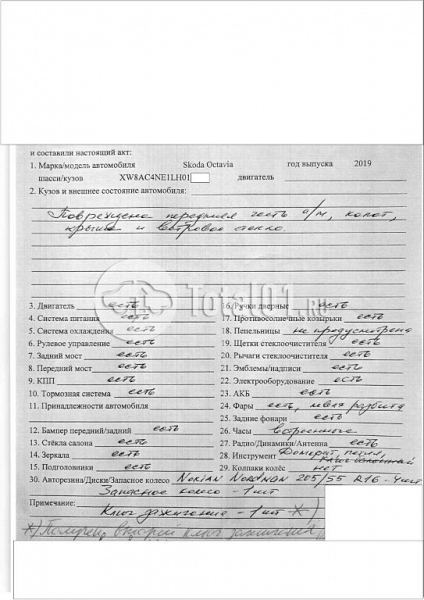 и составили настоящий акт:
1. Марка/модель автомобиля Skoda Octavia год выпуска 2019
шасси/кузов XW8AC4NE1LH01 двигатель
2. Кузов и внешнее состояние автомобиля:
Повреждена передняя часть а/м, капот,
крыша и ветровое стекло.
Total01.ru
3. Двигатель есть 16. Ручки дверные есть
4. Система питания есть 17. Противосолнечные козырьки есть
5. Система охлаждения есть 18. Пепельницы не предусмотрена
6. Рулевое управление есть 19. Щетки стеклоочистителя есть
7. Задний мост есть 20. Рычаги стеклоочистителя есть
8. Передний мост есть 21. Эмблемы/надписи есть
9. КПП есть 22. Электрооборудование есть
10. Тормозная система есть 23. АКБ есть
11. Принадлежности автомобиля 24. Фары есть, левая разбита
25. Задние фонари есть
12. Бампер передний/задний есть 26. Часы встроенные
13. Стёкла салона есть 27. Радио/Динамики/Антенна есть
14. Зеркала есть 28. Инструмент Домкрат, ключ баллонный
15. Подголовники есть 29. Колпаки колёс нет
30. Авторезина/Диски/Запасное колесо Nokian Nordman 205/55 R16 - 4шт
Запасное колесо - 1шт
Примечание: Ключ зажигания - 1шт *)
*) Потерян второй ключ зажигания